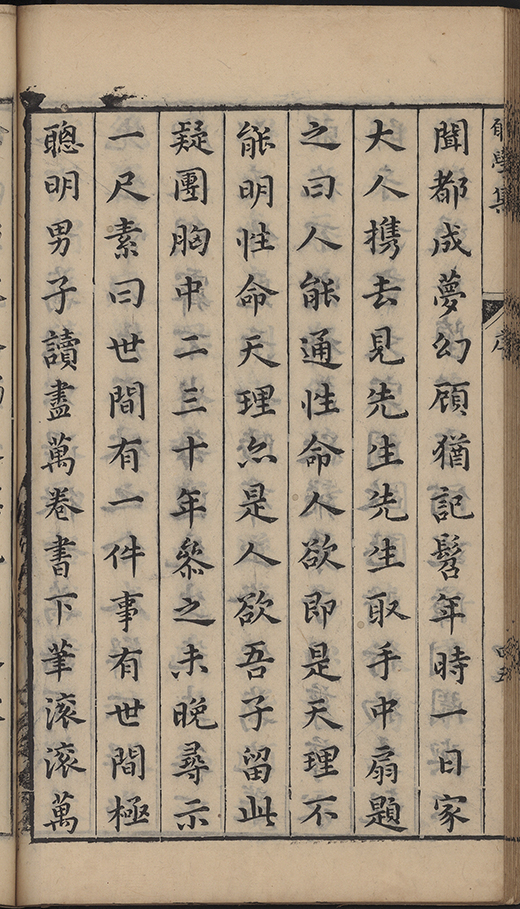 聞都成夢幻顧猶記髫年時一日家
大人携去見先生先生取手中扇題
之曰人能通性命人欲即是天理不
能明性命天理亦是人欲吾子留此
疑團胸中二三十年叅之未晚尋示
一尺素曰世間有一件事有世間極
聰明男子讀盡萬卷書下筆滚滚萬